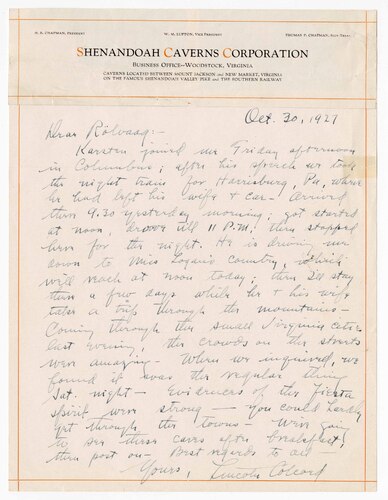 H. R. CHAPMAN, PRESIDENT W. M. LUPTON, VICE PRESIDENT THOMAS P. CHAPMAN, SECY-TREAS.
SHENANDOAH CAVERNS CORPORATION
BUSINESS OFFICE—WOODSTOCK, VIRGINIA
CAVERNS LOCATED BETWEEN MOUNT JACKSON AND NEW MARKET, VIRGINIA
ON THE FAMOUS SHENANDOAH VALLEY PIKE AND THE SOUTHERN RAILWAY
Oct. 30, 1927
Dear Rölvaag:-
Karsten joined me Friday afternoon
in Columbus; after his speech we took
the night train for Harrisburg, Pa, where
he had left his wife & car- Arrived
there 9.30 yesterday morning; got started
at noon, drove till 11 P.M; then stopped
here for the night. He is driving me
down to Miss Logan's country, which
will reach at noon today; then I'll stay
there a few days while he & his wife
take a trip through the mountains-
Coming through the small Virginia cities
last evening, the crowds on the streets
were amazing- When we inquired, we
found it was the regular thing
Sat. night- Evidences of the fiesta
spirit were strong- you could hardly
get through the towns- We're going
to see these caves after breakfast,
then post on- Best regards to all
Yours, Lincoln Colcord